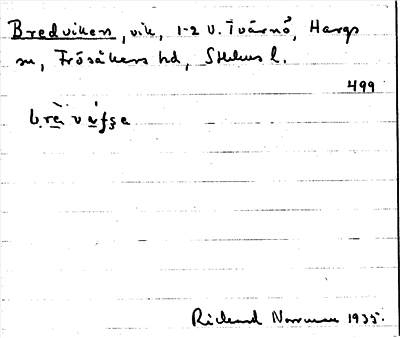 Bredviken, vik, 1-2 V. Tvärnö, Hargs
sn, Frösåkers hd, Sthlms l.
499
Richard Norrman 1935.